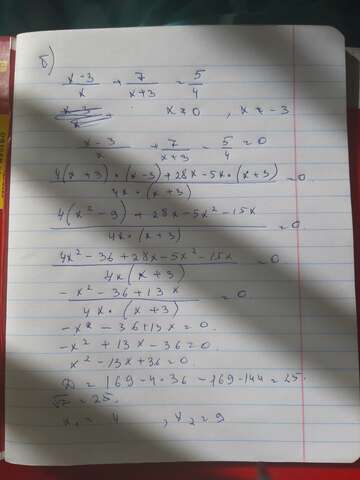 б)
x-3/x + 7/x+3 = 5/4
x ≠ 0 , x ≠ -3
x-3/x + 7/x+3 - 5/4 = 0
4(x+3)·(x-3)+28x-5x·(x+3)/4x·(x+3) = 0
4(x²-9)+28x-5x²-15x/4x·(x+3) = 0
4x²-36+28x-5x²-15x/4x(x+3) = 0
-x²-36+13x/4x·(x+3) = 0
-x²-36+13x=0
-x²+13x-36=0
x²-13x+36=0
D=169-4·36=169-144=25.
=25.
x₁=4 , x₂=9